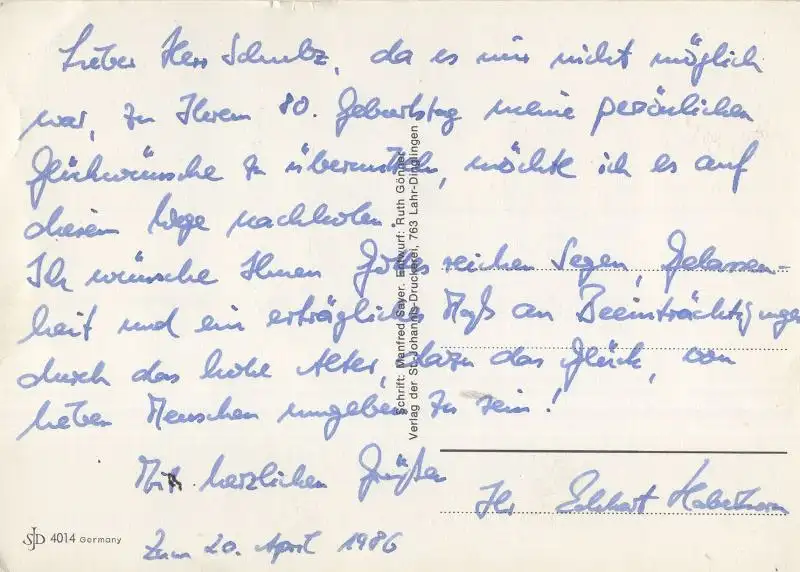 Lieber Herr Schulz, da es mir nicht möglich
war, zu Ihrem 80. Geburtstag meine persönlichen
Glückwünsche zu übermitteln, möchte ich es auf
diesem Wege nachholen.
Ich wünsche Ihnen Gottes reichen Segen, Gelassen-
heit und ein erträgliches Maß an Beeinträchtigungen
durch das hohe Alter, dazu das Glück, von
lieben Menschen umgeben zu sein!
Mit herzlichen Grüßen
Ihr Eckhart
Zum 20. April 1986
Schrift: Manfred Sayer. Entwurf: Ruth Gönner
Verlag der St.-Johannis-Druckerei, 763 Lahr-Dinglingen
SJD 4014 Germany